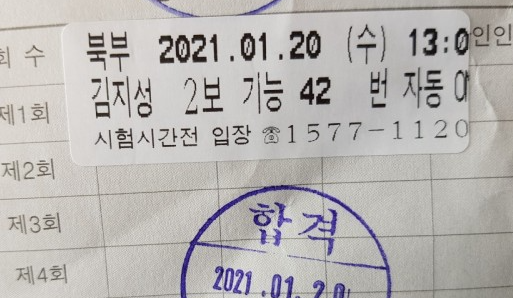 회 수
북부 2021.01.20 (수) 13:0
인인
제1회
김지성 2보 기능 42 번 자동
시험시간전 입장 ☏1577-1120
제2회
제3회
합격
제4회
2021.01.20